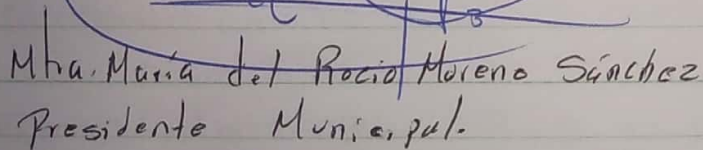 Mtra. María del Rocio Moreno Sánchez
Presidente Municipal.